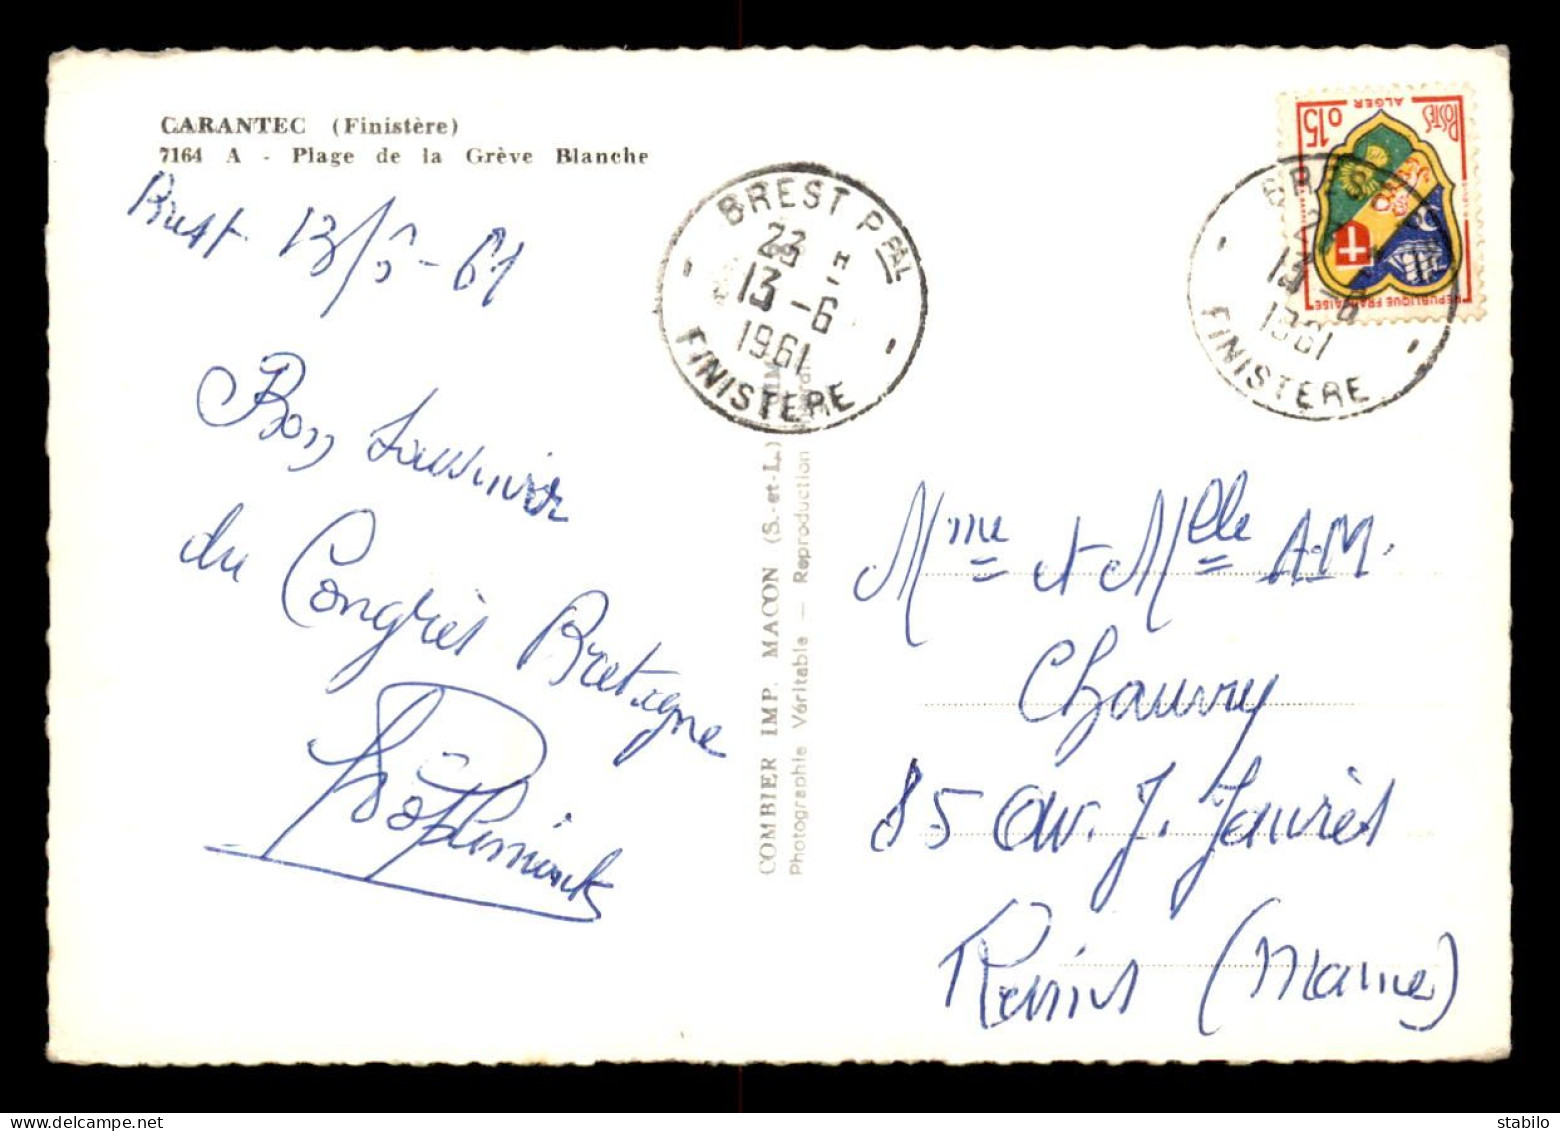 CARANTEC (Finistère)
7164 A - Plage de la Grève Blanche
Brest 13/6-61
Bon souvenir
du Congrès Bretagne
BREST PPAL
23 H
13-6
1961
FINISTERE
COMBIER IMP. MACON (S.-et-L.)
Photographie Véritable — Reproduction
0,15
ALGER
POSTES
REPUBLIQUE FRANÇAISE
13-6
1961
FINISTERE
Mme et Mlle A.M.
Chauvry
85 av. J. Jaurès
Reims (Marne)
stabilo